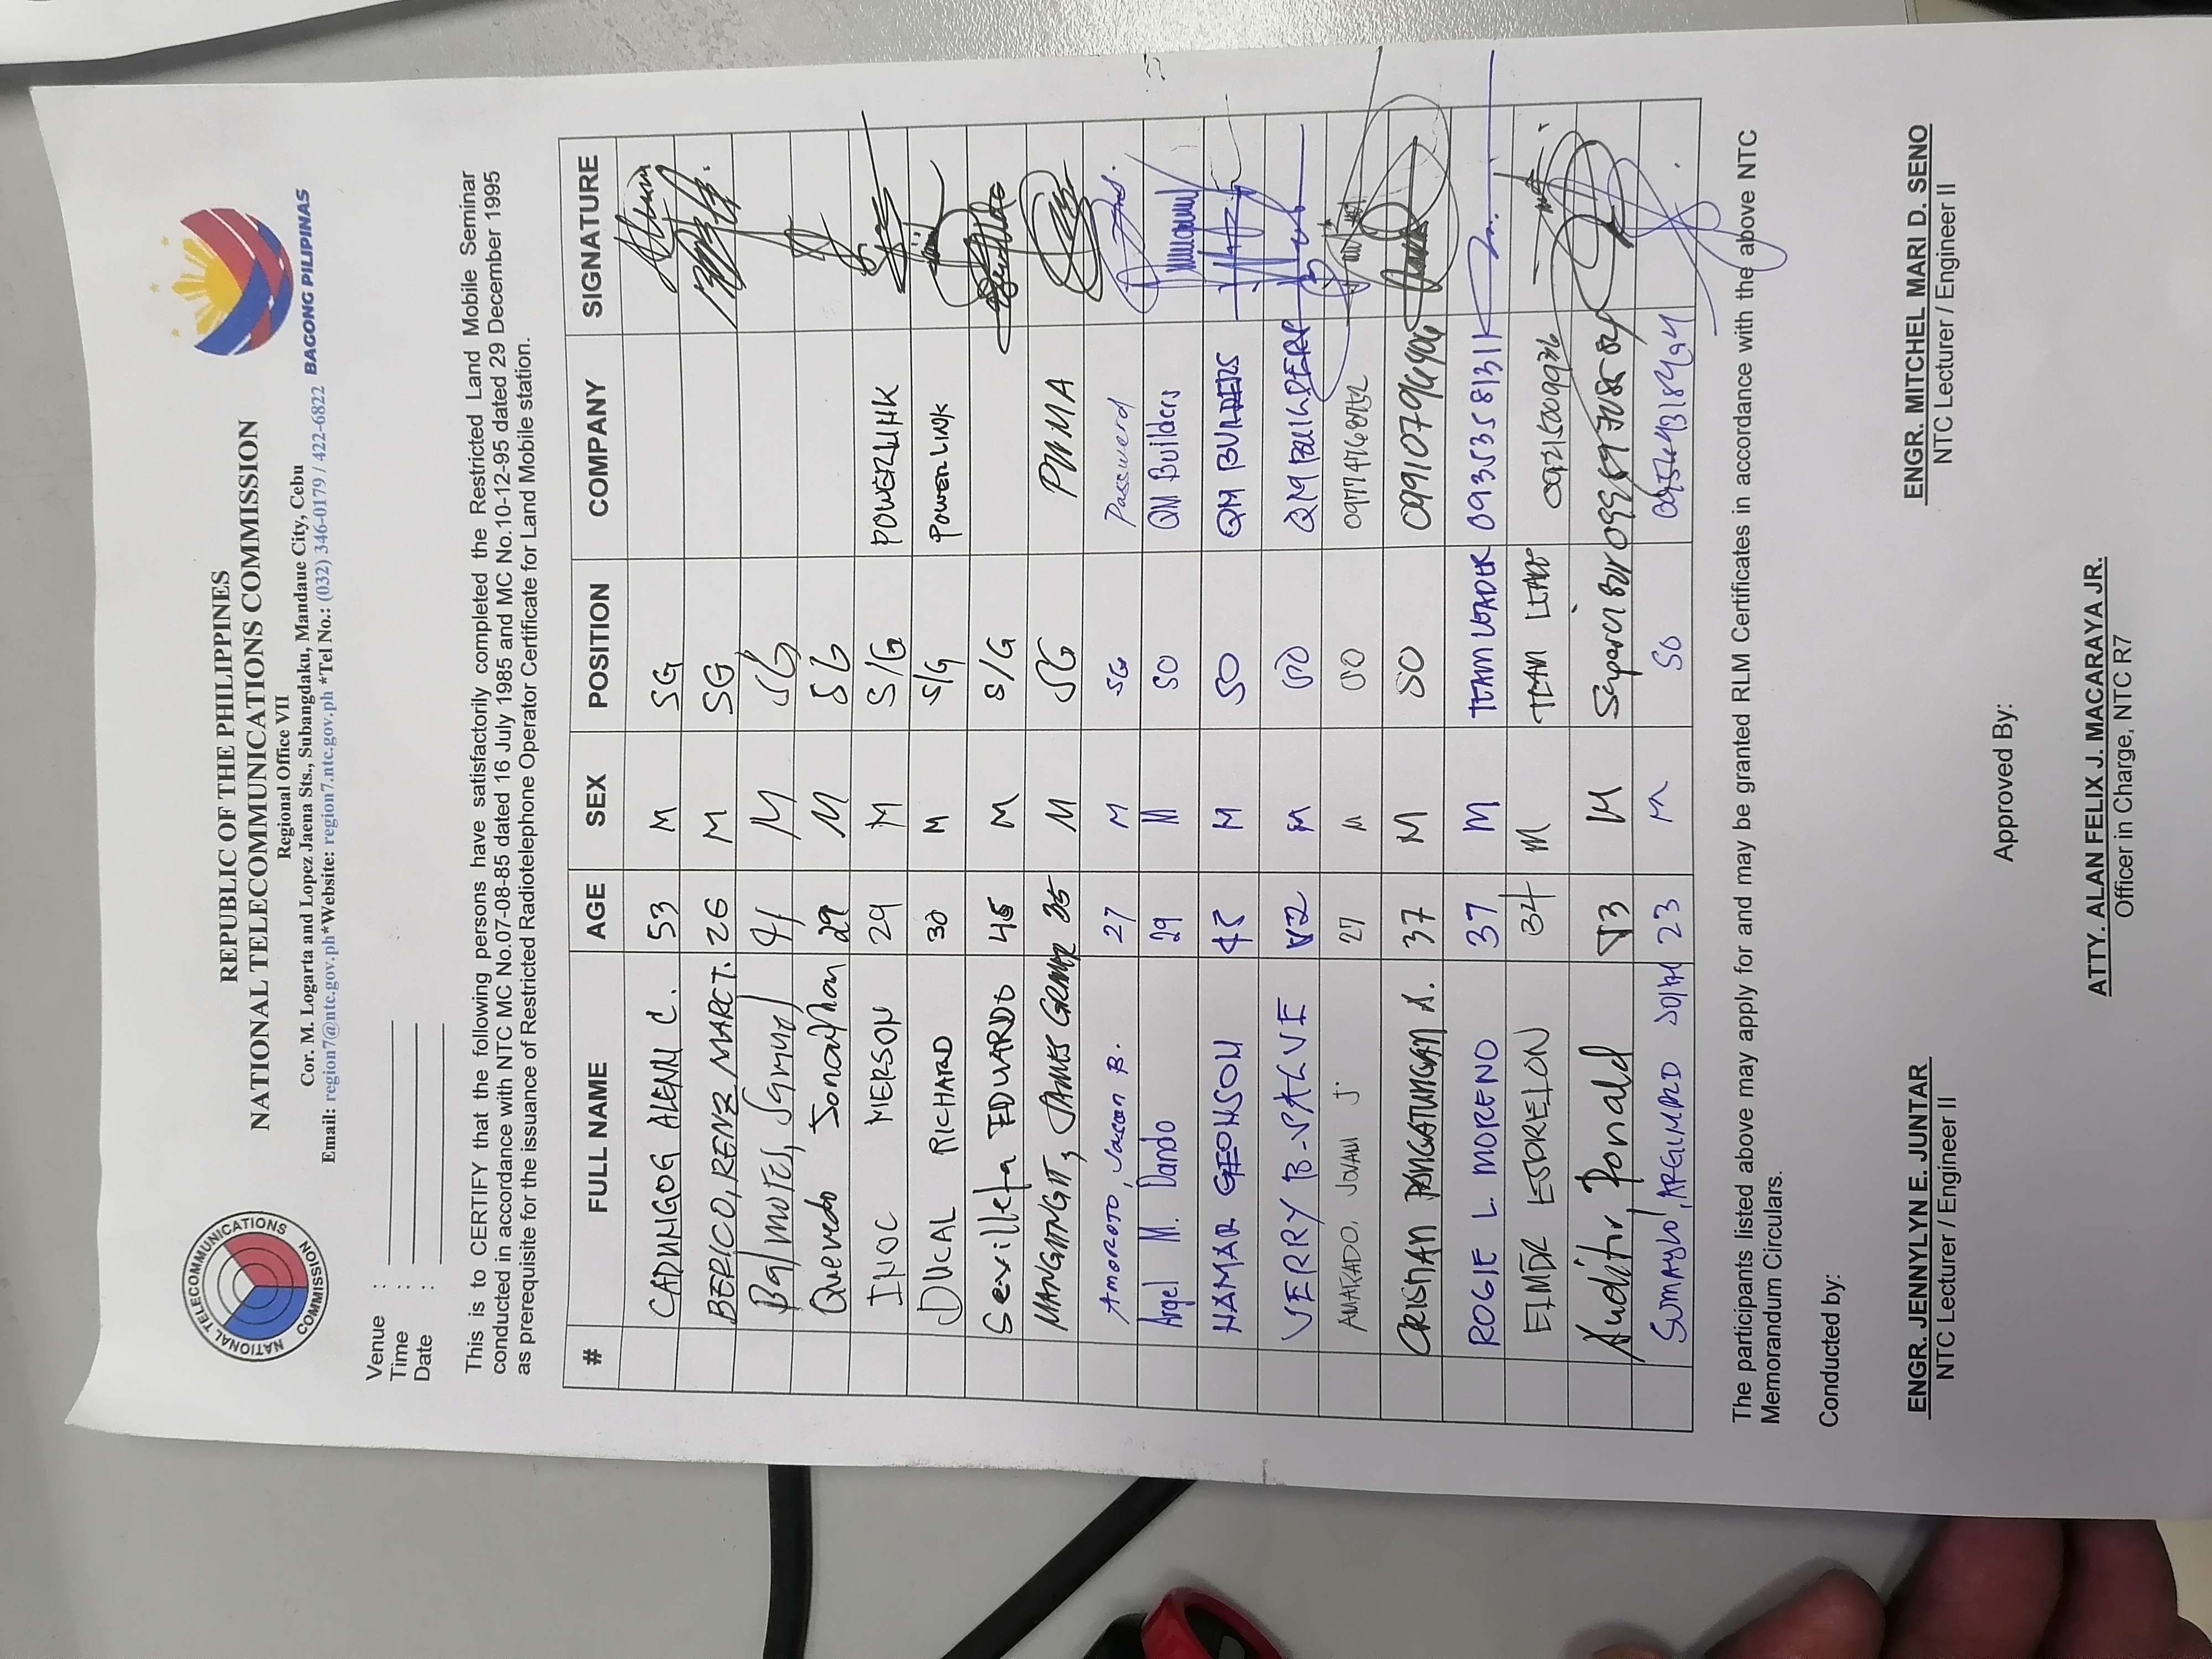 REPUBLIC OF THE PHILIPPINES
NATIONAL TELECOMMUNICATIONS COMMISSION
Regional Office VII
Cor. M. Logarta and Lopez Jaena Sts., Subangdaku, Mandaue City, Cebu
Email: region7@ntc.gov.ph*Website: region7.ntc.gov.ph *Tel No.: (032) 346-0179 / 422-6822
BAGONG PILIPINAS
NATIONAL TELECOMMUNICATIONS COMMISSION
Venue :
Time :
Date :
This is to CERTIFY that the following persons have satisfactorily completed the Restricted Land Mobile Seminar
conducted in accordance with NTC MC No.07-08-85 dated 16 July 1985 and MC No.10-12-95 dated 29 December 1995
as prerequisite for the issuance of Restricted Radiotelephone Operator Certificate for Land Mobile station.
# FULL NAME AGE SEX POSITION COMPANY SIGNATURE
CADUNGOG ALENN C. 53 M SG
BERICO, RENZ MARC T. 26 M SG
Balmotes, 41 M SG
Quevedo Jonathan 29 M SG
INOC MERSON 29 M S/G POWERLINK
DUCAL RICHARD 30 M S/G POWERLINK
Sevilleja EDUARDO 45 M S/G
JAMES 35 M SG PUMA
AMOROTO, Jason B. 27 M SG Password
Argel M. Dando 29 M SO QM Builders
HAMAR GEOHSON 45 M SO QM BUILDERS
VERRY B. 42 M SO QM BUILDERS
AMAKADO, JOVANI J. 27 M SO
CRISTIAN PANGATUNGAN A. 37 M SO 09107946406
ROGIE L MORENO 37 M TEAM LEADER 09353581311
ELMER ESDRELON 34 M TEAM LEAD
Auditor, Ronald 53 M
SUMAYLO, 23 M SO
The participants listed above may apply for and may be granted RLM Certificates in accordance with the above NTC
Memorandum Circulars.
Conducted by:
ENGR. JENNYLYN E. JUNTAR ENGR. MITCHEL MARI D. SENO
NTC Lecturer / Engineer II NTC Lecturer / Engineer II
Approved By:
ATTY. ALAN FELIX J. MACARAYA JR.
Officer in Charge, NTC R7